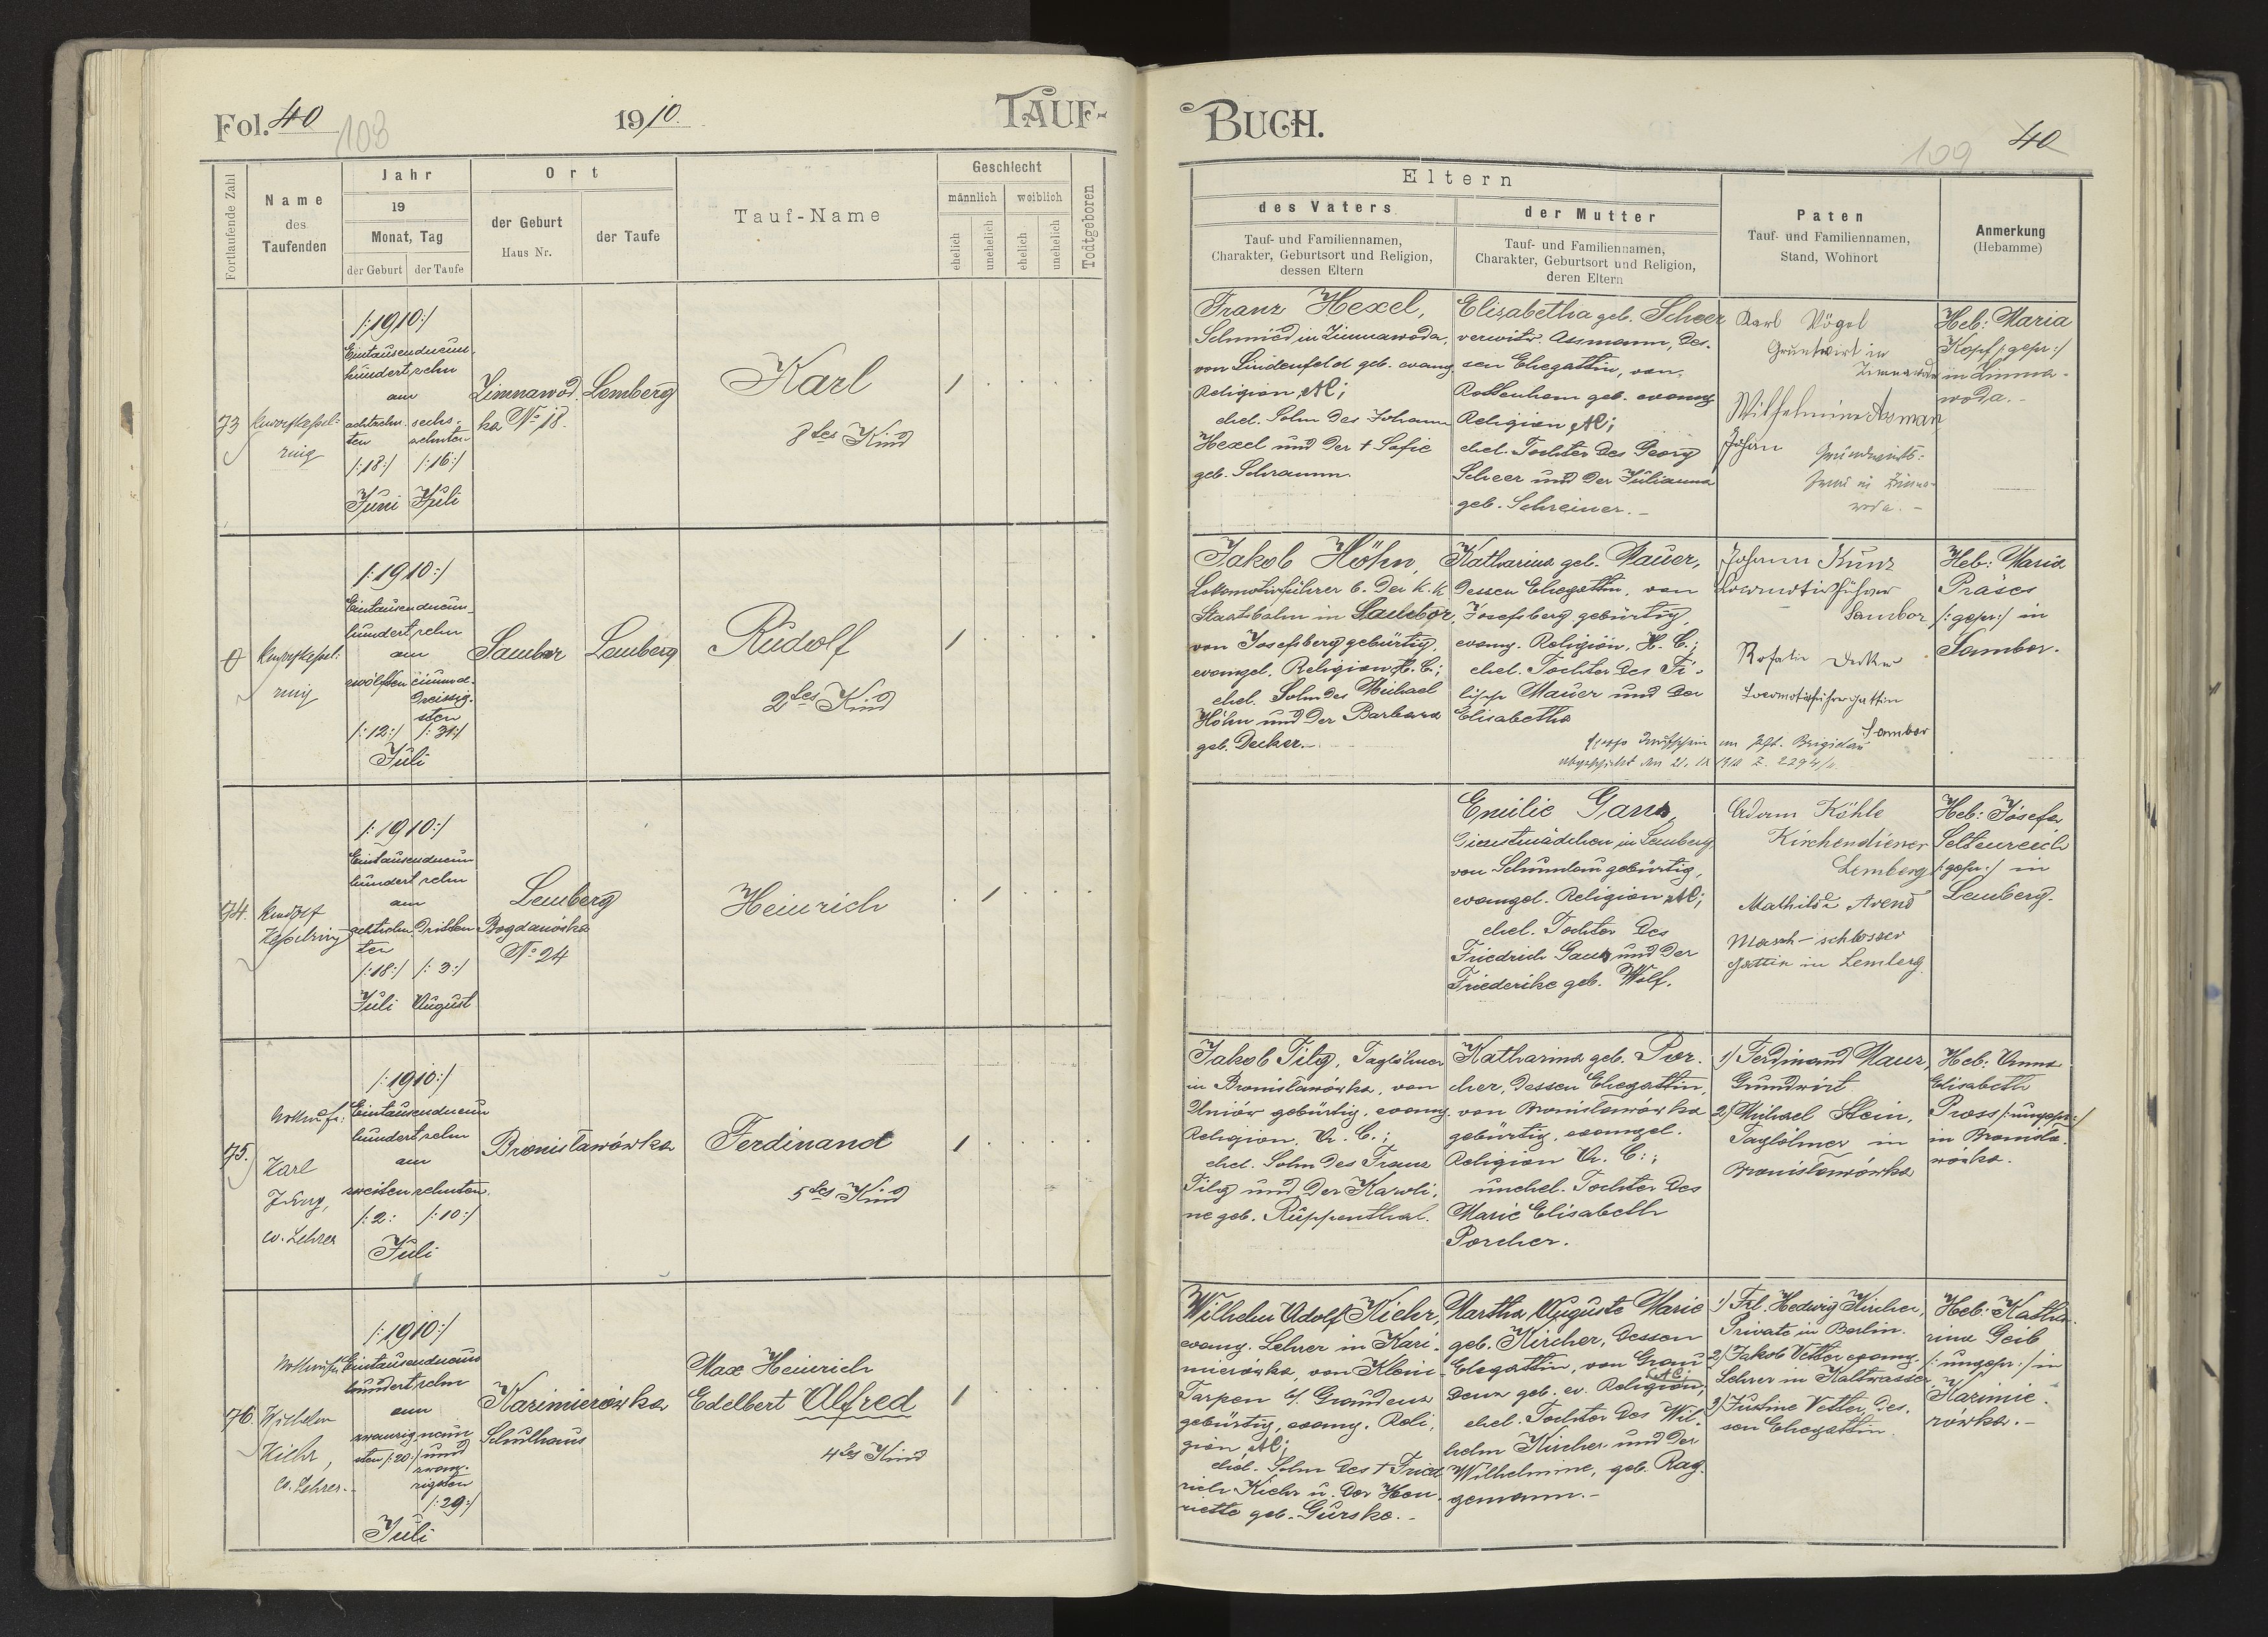 Fol. 40
103
1910.
TAUF-
Fortlaufende Zahl
Name
des
Taufenden
Jahr
19
Monat, Tag
der Geburt
der Taufe
Ort
der Geburt
Haus Nr.
der Taufe
Tauf-Name
Geschlecht
männlich
weiblich
ehelich
unehelich
ehelich
unehelich
Todtgeboren
73
ring
/:1910:/
Eintausendneun-
hundert zehn
am
achtzehn-
ten
/:18:/
Juni
sechs-
zehnten
/:16:/
Juli
Zimnawod-
ka No 18.
Lemberg
Karl
8tes Kind
0
ring
/:1910:/
Eintausendneun-
hundert zehn
am
zwölften
/:12:/
einund-
dreissig-
sten
/:31:/
Juli
Sambor
Lemberg
Rudolf
2tes Kind
74.
Rudolf
Kesselring
/:1910:/
Eintausendneun
hundert zehn
am
achtzehn-
ten
/:18:/
Juli
dritten
/:3:/
August
Lemberg
Bogdanówka
No 24
Heinrich
75.
Karl
ev. Lehrer
/:1910:/
Eintausendneun
hundert zehn
am
zweiten
/:2:
zehnten
/:10:/
Juli
Bronisławówka
Ferdinand
5tes Kind
76.
Wilhelm
Kiehr,
ev. Lehrer.
/:1910:/
Eintausendneun
hundert zehn
am
zwanzig-
sten /:20:/
neun
und
zwan-
zigsten
/:29:/
Juli
Kazimierówka
Schulhaus
Max Heinrich
Edelbert Alfred
4tes Kind
BUCH.
109
40
Eltern
des Vaters
Tauf- und Familiennamen,
Charakter, Geburtsort und Religion,
dessen Eltern
der Mutter
Tauf- und Familiennamen,
Charakter, Geburtsort und Religion,
deren Eltern
Paten
Tauf- und Familiennamen,
Stand, Wohnort
Anmerkung
(Hebamme)
Franz Hexel,
Schmied in Zimnawoda,
von Lindenfeld geb. evang.
Religion AC;
ehel. Sohn des Johann
Hexel und der † Sofie
geb. Schramm.
Elisabetha geb. Scheer
verwitw. Assmann, des-
sen Ehegattin, von
Rottenhan geb. evang
Religion AC;
ehel. Tochter des Georg
Scheer und der Julianna
geb. Schreiner.-
Karl Vögel
Grundwirt in
Zimnawoda
Wilhelmine Assman
Johan
Heb: Maria
Kopf /:gepr:/
in Zimna-
woda.-
Jakob Höhn,
Lokomotivführer b. der k. k.
Staatsbahn in Sambor,
von Josefsberg gebürtig,
evangel. Religion H. C.;
ehel. Sohn des Michael
Höhn und der Barbara
geb. Decker.-
Katharina geb. Mauer,
dessen Ehegattin, von
Josefsberg gebürtig,
evang. Religion, H. C.;
ehel. Tochter des Fi-
lipp Mauer und der
Elisabetha
Johann Kunz
Locomotivführer
Sambor
Rosalie Decker
Locomotivführergattin
Sambor
Heb: Maria
Präses
/:gepr:/ in
Sambor.
Emilie Ganz,
Dienstmädchen in Lemberg,
von Schumlau gebürtig,
evangel. Religion AC;
ehel. Tochter des
Friedrich Ganz und der
Friederike geb. Wolf.
Adam Köhle
Kirchendiener
Lemberg
Mathilde Arend
Masch-schlosser
Gattin in Lemberg
Heb: Josefa
Seltenreich
/:gepr:/ in
Lemberg.
Jakob Tilg, Taglöhner
in Bronisławówka, von
Uniów gebürtig, evang.
Religion, A. C.;
ehel. Sohn des Franz
Tilg und der Karoli-
ne geb. Ruppenthal.
Katharina geb. Por-
cher, dessen Ehegattin,
von Bronisławówka
gebürtig, evangel.
Religion A. C.;
unehel. Tochter des
Marie Elisabeth
Porcher.
1) Ferdinand Manz,
Grundwirt
2) Michael Stein,
Taglöhner in
Bronisławówka
Heb: Anna
Elisabeth
Pross /:ungepr:/
in Bronisła-
wówka.
Wilhelm Adolf Kiehr,
evang. Lehrer in Kazi-
mierówka, von Klein-
Tarpen b/ Graudenz
gebürtig, evang. Reli-
gion AC;
ehel. Sohn des † Fried-
rich Kiehr u. der Hen-
riette geb. Gurske.-
Martha Auguste Marie
geb. Kircher, dessen
Ehegattin, von Grau-
denz geb. ev. Religion, AC;
ehel. Tochter des Wil-
helm Kircher und der
Wilhelmine, geb. Rag-
gemann.-
1) Frl. Hedwig Kircher,
Private in Berlin.
2) Jakob Vetter evang.
Lehrer in Kaltwasser
3) Justine Vetter, des-
sen Ehegattin.
Heb: Katha-
rina Geib
/:ungepr:/ in
Kazimie-
rówka.-